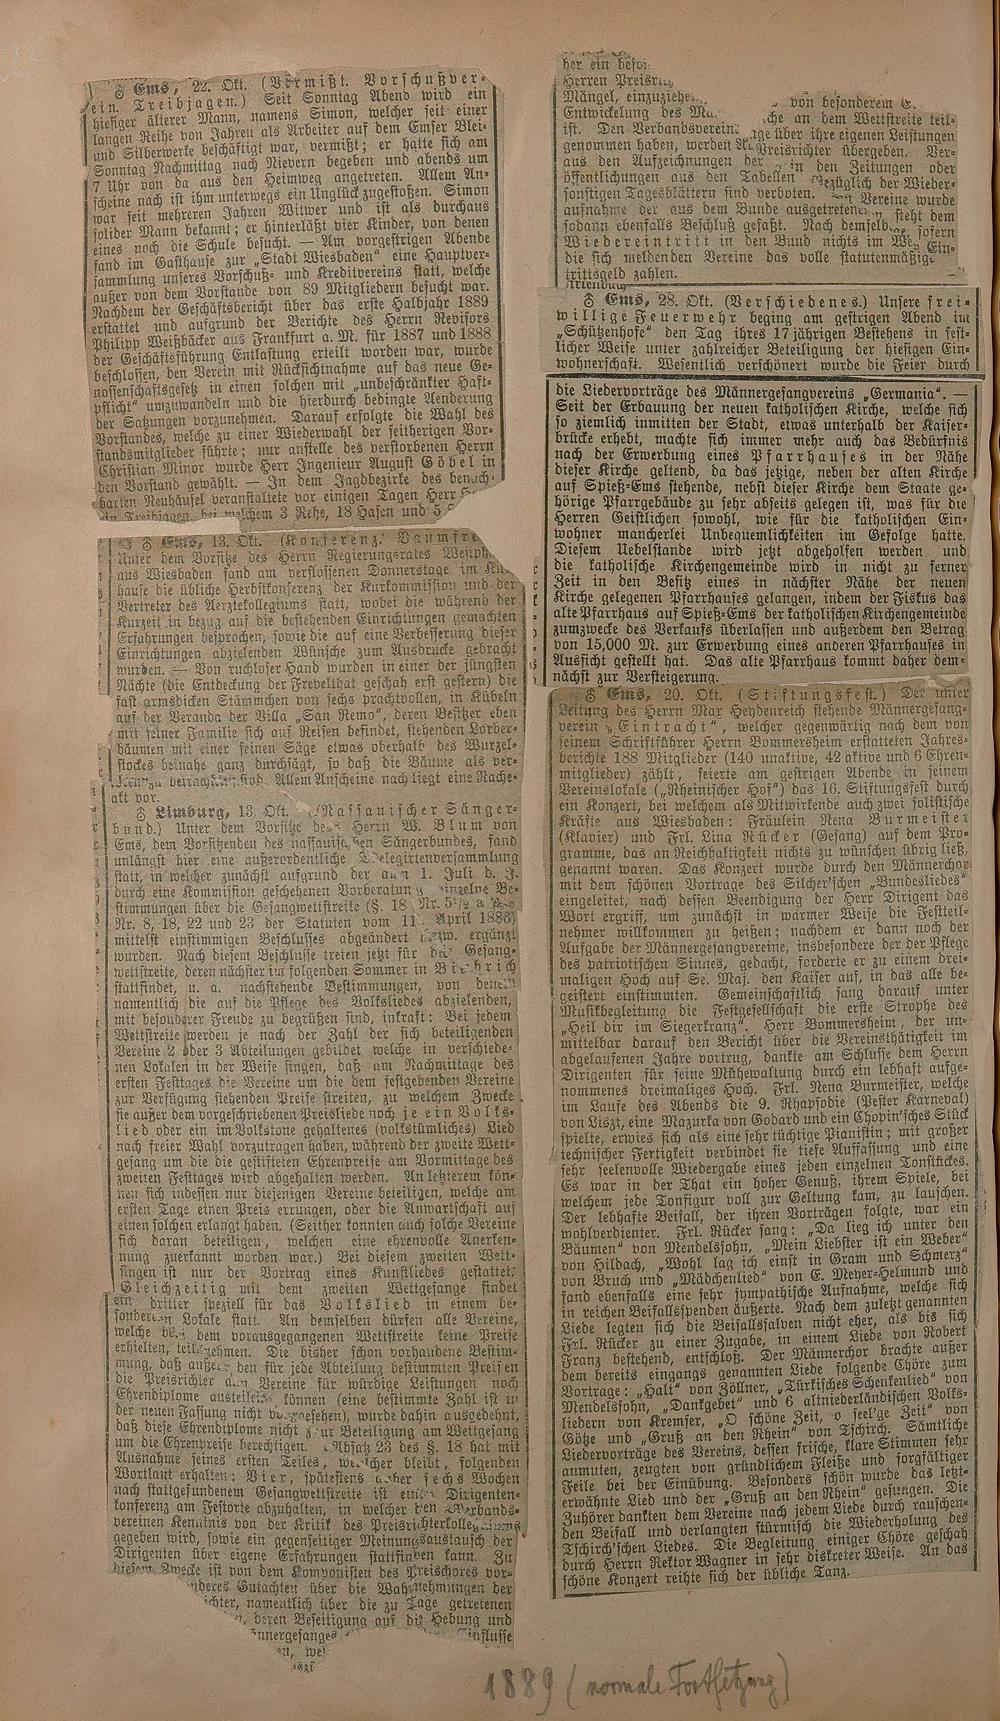 ☿ Ems, 22. Okt. (Vermißt. Vorschußver-
ein. Treibjagen.) Seit Sonntag Abend wird ein
hiesiger älterer Mann, namens Simon, welcher seit einer
langen Reihe von Jahren als Arbeiter auf dem Emser Blei-
und Silberwerke beschäftigt war, vermißt; er hatte sich am
Sonntag Nachmittag nach Nievern begeben und abends um
7 Uhr von da aus den Heimweg angetreten. Allem An-
scheine nach ist ihm unterwegs ein Unglück zugestoßen. Simon
war seit mehreren Jahren Witwer und ist als durchaus
solider Mann bekannt; er hinterläßt vier Kinder, von denen
eines noch die Schule besucht. — Am vorgestrigen Abende
fand im Gasthause zur „Stadt Wiesbaden“ eine Hauptver-
sammlung unseres Vorschuß- und Kreditvereins statt, welche
außer von dem Vorstande von 89 Mitgliedern besucht war.
Nachdem der Geschäftsbericht über das erste Halbjahr 1889
erstattet und aufgrund der Berichte des Herrn Revisors
Philipp Weißbäcker aus Frankfurt a. M. für 1887 und 1888
der Geschäftsführung Entlastung erteilt worden war, wurde
beschlossen, den Verein mit Rücksichtnahme auf das neue Ge-
nossenschaftsgesetz in einen solchen mit „unbeschränkter Haft-
pflicht“ umzuwandeln und die hierdurch bedingte Aenderung
der Satzungen vorzunehmen. Darauf erfolgte die Wahl des
Vorstandes, welche zu einer Wiederwahl der seitherigen Vor-
standsmitglieder führte; nur anstelle des verstorbenen Herrn
Christian Minor wurde Herr Ingenieur August Göbel in
den Vorstand gewählt. — In dem Jagdbezirke des benach-
barten Neuhäusel veranstaltete vor einigen Tagen Herr
ein Treibjagen, bei welchem 3 Rehe, 18 Hasen und 5
☿ Ems, 13. Okt. (Konferenz. Baumfre
Unter dem Vorsitze des Herrn Regierungsrates Westph
aus Wiesbaden fand am verflossenen Donnerstage im Kur-
hause die übliche Herbstkonferenz der Kurkommission und der
Vertreter des Aerztekollegiums statt, wobei die während der
Kurzeit in bezug auf die bestehenden Einrichtungen gemachten
Erfahrungen besprochen, sowie die auf eine Verbesserung dieser
Einrichtungen abzielenden Wünsche zum Ausdrucke gebracht
wurden. — Von ruchloser Hand wurden in einer der jüngsten
Nächte (die Entdeckung der Frevelthat geschah erst gestern) die
fast armsdicken Stämmchen von sechs prachtvollen, in Kübeln
auf der Veranda der Villa „San Remo“, deren Besitzer eben
mit seiner Familie sich auf Reisen befindet, stehenden Lorber-
bäumen mit einer feinen Säge etwas oberhalb des Wurzel-
stockes beinahe ganz durchsägt, so daß die Bäume als ver-
loren zu betrachten sind. Allem Anscheine nach liegt eine Rache-
akt vor.
☿ Limburg, 13. Okt. (Nassauischer Sänger-
bund.) Unter dem Vorsitze des Herrn W. Blum von
Ems, dem Vorsitzenden des nassauischen Sängerbundes, fand
unlängst hier eine außerordentliche Delegirtenversammlung
statt, in welcher zunächst aufgrund der am 1. Juli d. J.
durch eine Kommission geschehenen Vorberatung einzelne Be-
stimmungen über die Gesangwettstreite (§. 18 Nr. 5
Nr. 8, 18, 22 und 23 der Statuten vom 11. April 1886)
mittelst einstimmigen Beschlusses abgeändert bezw. ergänzt
wurden. Nach diesem Beschlusse treten jetzt für die Gesang-
wettstreite, deren nächster im folgenden Sommer in Biebrich
stattfindet, u. a. nachstehende Bestimmungen, von denen
namentlich die auf die Pflege des Volksliedes abzielenden,
mit besonderer Freude zu begrüßen sind, inkraft: Bei jedem
Wettstreite werden je nach der Zahl der sich beteiligenden
Vereine 2 oder 3 Abteilungen gebildet welche in verschiede-
nen Lokalen in der Weise singen, daß am Nachmittage des
ersten Festtages die Vereine um die dem festgebenden Vereine
zur Verfügung stehenden Preise streiten, zu welchem Zwecke
sie außer dem vorgeschriebenen Preisliede noch je ein Volks-
lied oder ein im Volkstone gehaltenes (volkstümliches) Lied
nach freier Wahl vorzutragen haben, während der zweite Wett-
gesang um die die gestifteten Ehrenpreise am Vormittage des
zweiten Festtages wird abgehalten werden. An letzterem kön-
nen sich indessen nur diejenigen Vereine beteiligen, welche am
ersten Tage einen Preis errungen, oder die Anwartschaft auf
einen solchen erlangt haben. (Seither konnten auch solche Vereine
sich daran beteiligen, welchen eine ehrenvolle Anerken-
nung zuerkannt worden war.) Bei diesem zweiten Wett-
singen ist nur der Vortrag eines Kunstliedes gestattet.
Gleichzeitig mit dem zweiten Wettgesange findet
ein dritter speziell für das Volkslied in einem be-
sonderen Lokale statt. An demselben dürfen alle Vereine,
welche bei dem vorausgegangenen Wettstreite keine Preise
erhielten, teilnehmen. Die bisher schon vorhandene Bestim-
mung, daß außer den für jede Abteilung bestimmten Preisen
die Preisrichter den Vereine für würdige Leistungen noch
Ehrendiplome austeilen können (eine bestimmte Zahl ist in
der neuen Fassung nicht vorgesehen), wurde dahin ausgedehnt,
daß diese Ehrendiplome nicht zur Beteiligung am Wettgesang
um die Ehrenpreise berechtigen. Absatz 23 des §. 18 hat mit
Ausnahme seines ersten Teiles, welcher bleibt, folgenden
Wortlaut erhalten: Vier, spätestens aber sechs Wochen
nach stattgefundenem Gesangwettstreite ist eine Dirigenten-
konferenz am Festorte abzuhalten, in welcher den Verbands-
vereinen Kenntnis von der Kritik des Preisrichterkollegiums
gegeben wird, sowie ein gegenseitiger Meinungsaustausch der
Dirigenten über eigene Erfahrungen stattfinden kann. Zu
diesem Zwecke ist von dem Komponisten des Preischores vor-
nderes Gutachten über die Wahrnehmungen der
ichter, namentlich über die zu Tage getretenen
, deren Beseitigung auf die Hebung und
ännergesanges Einflusse
en, we
her ein beso
Herren Preisri
Mängel, einzuziehe von besonderem E
Entwickelung des Mä che an dem Wettstreite teil-
ist. Den Verbandsverein age über ihre eigenen Leistungen
genommen haben, werden A Preisrichter übergeben. Ver-
aus den Aufzeichnungen der in den Zeitungen oder
öffentlichungen aus den Tabellen Bezüglich der Wieder-
sonstigen Tagesblättern sind verboten. Vereine wurde
aufnahme der aus dem Bunde ausgetretenen steht dem
sodann ebenfalls Beschluß gefaßt. Nach demselben sofern
Wiedereintritt in den Bund nichts im Wege Ein-
die sich meldenden Vereine das volle statutenmäßige
trittsgeld zahlen.
☿ Ems, 28. Okt. (Verschiedenes.) Unsere frei-
willige Feuerwehr beging am gestrigen Abend im
„Schützenhofe“ den Tag ihres 17jährigen Bestehens in fest-
licher Weise unter zahlreicher Beteiligung der hiesigen Ein-
wohnerschaft. Wesentlich verschönert wurde die Feier durch
die Liedervorträge des Männergesangvereins „Germania“. —
Seit der Erbauung der neuen katholischen Kirche, welche sich
so ziemlich inmitten der Stadt, etwas unterhalb der Kaiser-
brücke erhebt, machte sich immer mehr auch das Bedürfnis
nach der Erwerbung eines Pfarrhauses in der Nähe
dieser Kirche geltend, da das jetzige, neben der alten Kirche
auf Spieß-Ems stehende, nebst dieser Kirche dem Staate ge-
hörige Pfarrgebäude zu sehr abseits gelegen ist, was für die
Herren Geistlichen sowohl, wie für die katholischen Ein-
wohner mancherlei Unbequemlichkeiten im Gefolge hatte.
Diesem Uebelstande wird jetzt abgeholfen werden und
die katholische Kirchengemeinde wird in nicht zu ferner
Zeit in den Besitz eines in nächster Nähe der neuen
Kirche gelegenen Pfarrhauses gelangen, indem der Fiskus das
alte Pfarrhaus auf Spieß-Ems der katholischen Kirchengemeinde
zumzwecke des Verkaufs überlassen und außerdem den Betrag
von 15,000 M. zur Erwerbung eines anderen Pfarrhauses in
Aussicht gestellt hat. Das alte Pfarrhaus kommt daher dem-
nächst zur Versteigerung.
☿ Ems, 20. Okt. (Stiftungsfest.) Der unter
Leitung des Herrn Max Heydenreich stehende Männergesang-
verein „Eintracht“, welcher gegenwärtig nach dem von
seinem Schriftführer Herrn Bommersheim erstatteten Jahres-
berichte 188 Mitglieder (140 unaktive, 42 aktive und 6 Ehren-
mitglieder) zählt, feierte am gestrigen Abende in seinem
Vereinslokale („Rheinischer Hof“) das 16. Stiftungsfest durch
ein Konzert, bei welchem als Mitwirkende auch zwei solistische
Kräfte aus Wiesbaden: Fräulein Nena Burmeister
(Klavier) und Frl. Lina Rücker (Gesang) auf dem Pro-
gramme, das an Reichhaltigkeit nichts zu wünschen übrig ließ,
genannt waren. Das Konzert wurde durch den Männerchor
mit dem schönen Vortrage des Silcher'schen „Bundesliedes“
eingeleitet, nach dessen Beendigung der Herr Dirigent das
Wort ergriff, um zunächst in warmer Weise die Festteil-
nehmer willkommen zu heißen; nachdem er dann noch der
Aufgabe der Männergesangvereine, insbesondere der der Pflege
des patriotischen Sinnes, gedacht, forderte er zu einem drei-
maligen Hoch auf Se. Maj. den Kaiser auf, in das alle be-
geistert einstimmten. Gemeinschaftlich sang darauf unter
Musikbegleitung die Festgesellschaft die erste Strophe des
„Heil dir im Siegerkranz“. Herr Bommersheim, der un-
mittelbar darauf den Bericht über die Vereinsthätigkeit im
abgelaufenen Jahre vortrug, dankte am Schlusse dem Herrn
Dirigenten für seine Mühewaltung durch ein lebhaft aufge-
nommenes dreimaliges Hoch. Frl. Nena Burmeister, welche
im Laufe des Abends die 9. Rhapsodie (Pester Karneval)
von Liszt, eine Mazurka von Godard und ein Chopin'sches Stück
spielte, erwies sich als eine sehr tüchtige Pianistin; mit großer
technischer Fertigkeit verbindet sie tiefe Auffassung und eine
sehr seelenvolle Wiedergabe eines jeden einzelnen Tonstückes.
Es war in der That ein hoher Genuß, ihrem Spiele, bei
welchem jede Tonfigur voll zur Geltung kam, zu lauschen.
Der lebhafte Beifall, der ihren Vorträgen folgte, war ein
wohlverdienter. Frl. Rücker sang: „Da lieg ich unter den
Bäumen“ von Mendelsohn, „Mein Liebster ist ein Weber“
von Hildach, „Wohl lag ich einst in Gram und Schmerz“
von Bruch und „Mädchenlied“ von E. Meyer-Helmund und
fand ebenfalls eine sehr sympathische Aufnahme, welche sich
in reichen Beifallsspenden äußerte. Nach dem zuletzt genannten
Liede legten sich die Beifallssalven nicht eher, als bis sich
Frl. Rücker zu einer Zugabe, in einem Liede von Robert
Franz bestehend, entschloß. Der Männerchor brachte außer
dem bereits eingangs genannten Liede folgende Chöre zum
Vortrage: „Halt“ von Zöllner, „Türkisches Schenkenlied“ von
Mendelsohn, „Dankgebet“ und 6 altniederländischen Volks-
liedern von Kremser, „O schöne Zeit, o seel'ge Zeit“ von
Götze und „Gruß an den Rhein“ von Tschirch. Sämtliche
Liedervorträge des Vereins, dessen frische, klare Stimmen sehr
anmuten, zeugten von gründlichem Fleiße und sorgfältiger
Feile bei der Einübung. Besonders schön wurde das letzt-
erwähnte Lied und der „Gruß an den Rhein“ gesungen. Die
Zuhörer dankten dem Vereine nach jedem Liede durch rauschen-
den Beifall und verlangten stürmisch die Wiederholung des
Tschirch'schen Liedes. Die Begleitung einiger Chöre geschah
durch Herrn Rektor Wagner in sehr diskreter Weise. An das
schöne Konzert reihte sich der übliche Tanz.
1889 (normale Fortsetzung)